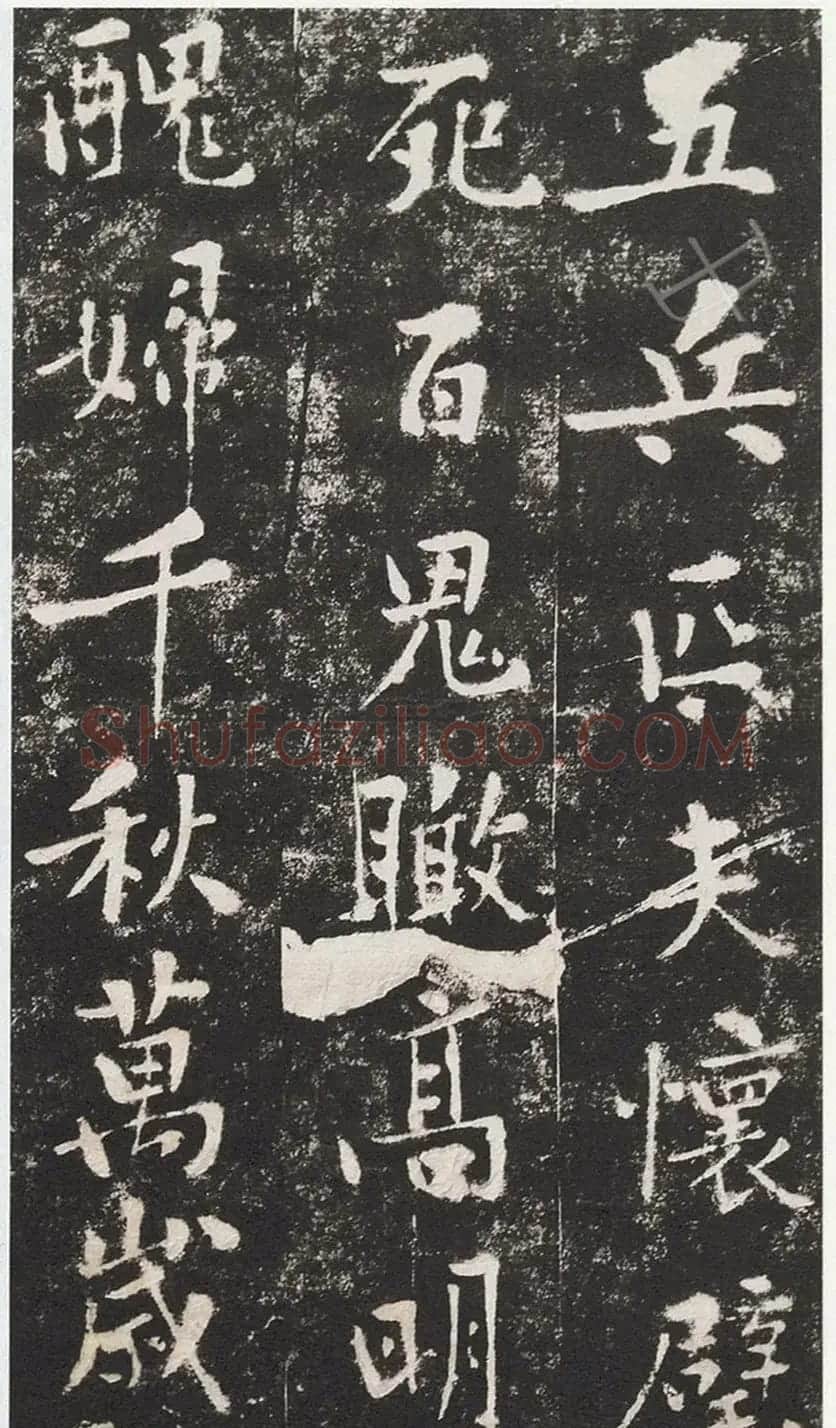 五兵匹夫懷璧
死百鬼瞰高明
醜婦千秋萬歲
Shufaziliao.COM